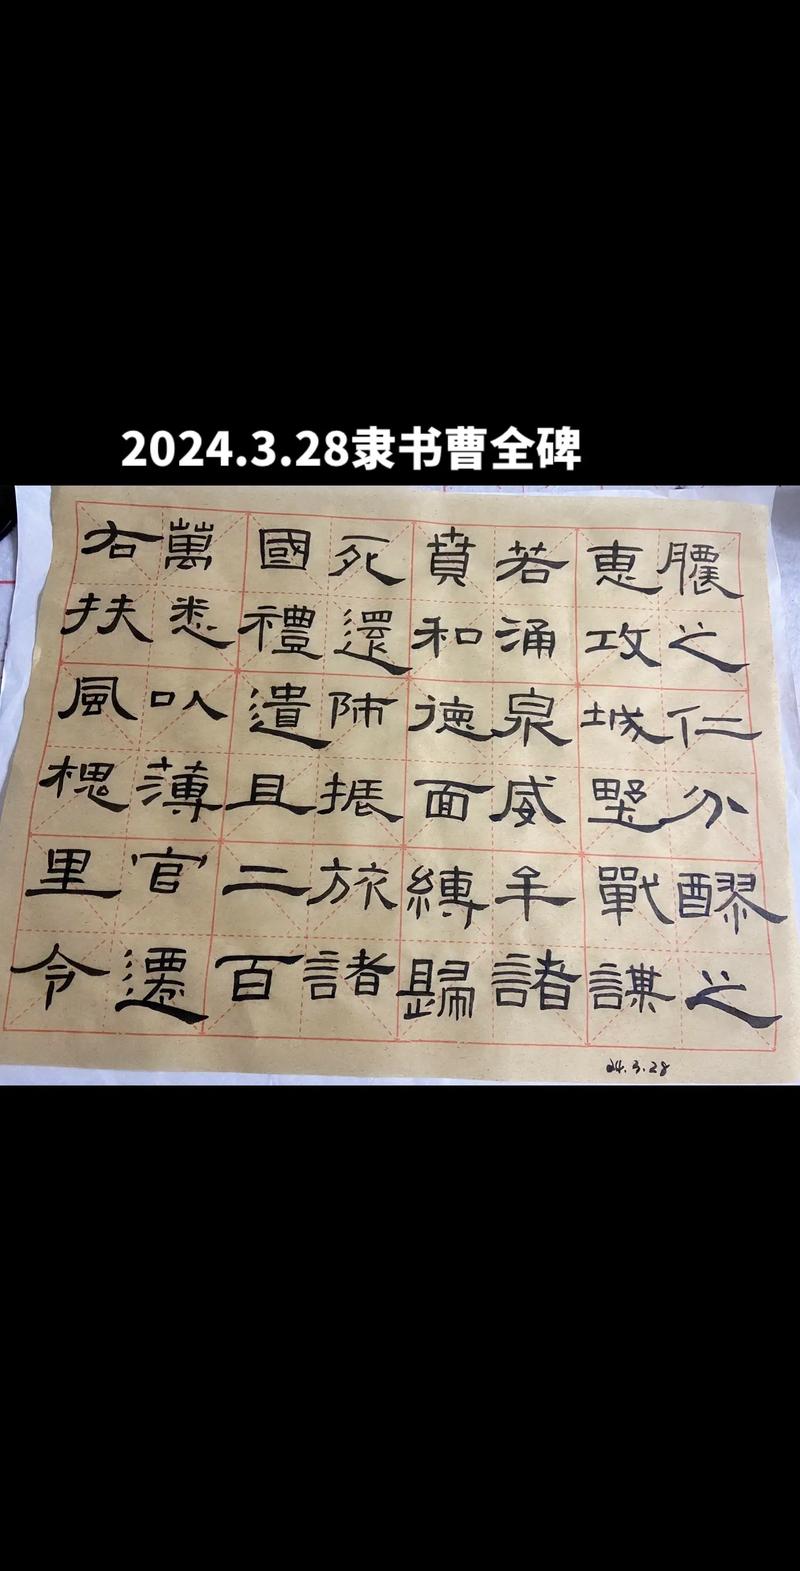 2024.3.28隶书曹全碑
膿之仁分醪之
恵攻城墅戰謀
若涌泉威牟諸
賁和徳面縛歸
死還師振旅諸
國禮遺且二百
萬悉以薄官遷
右扶風槐里令
24.3.28